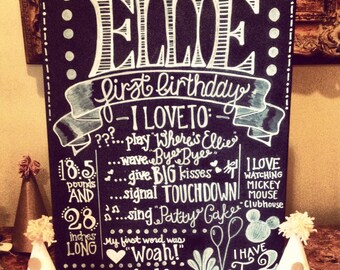 ELLIE
first birthday
I LOVE TO:
???... play "Where's Ellie
...wave Bye Bye
...give BIG kisses
...signal TOUCHDOWN!
...sing Patty Cake
18.5
pounds
AND
28
inches
LONG
I LOVE
WATCHING
MICKEY
MOUSE
Clubhouse
My first word was
"Woah!"
I HAVE